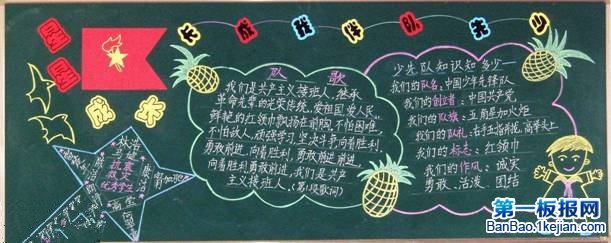 少先队伴我成长
林浩
马健
抗震
救灾
优秀学生
队 歌
我们是共产主义接班人,继承
革命先辈的光荣传统,爱祖国,爱人民,
鲜艳的红领巾飘扬在前胸,不怕困难,
不怕敌人,顽强学习,坚决斗争向着胜利,
勇敢前进,向着胜利,勇敢前进前进,
向着胜利勇敢前进,我们是共产
主义接班人,(第1段歌词)
少先队知识知多少—
我们的队名:中国少年先锋队
我们的创立者:中国共产党
我们的队旗:五角星加火炬
我们的队礼:右手五指并拢,高举头上
我们的标志:红领巾
我们的作风:诚实
勇敢、活泼、团结
第一板报网
BanBao.1kejian.com